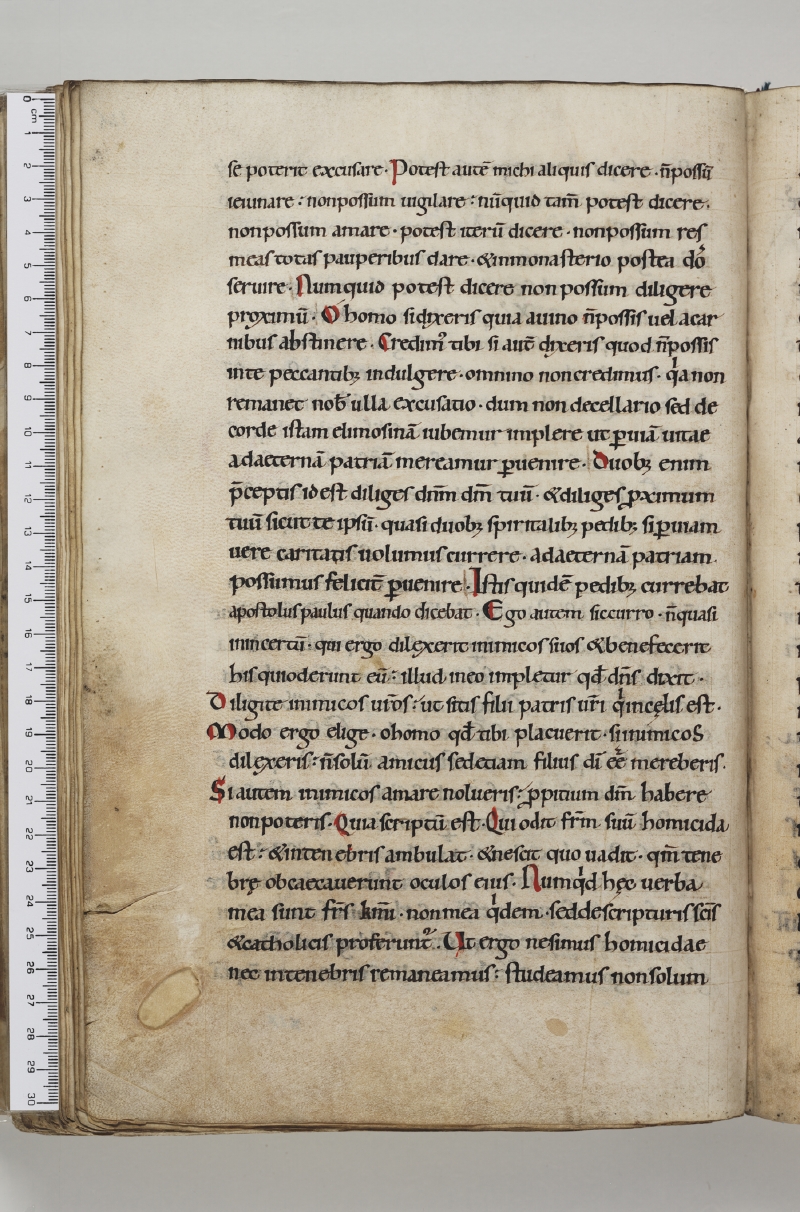 se poterit excusare· Potest autē michi aliquis dicere· n̄possū
ieiunare: nonpossum uigilare: nūquid tam̄ potest dicere,
nonpossum amare· potest iterū dicere· nonpossum res
meas totas pauperibus dare· &inmonasterio postea dō
seruire· Numquid potest dicere non possum diligere
proximū· O homo sidixeris quia auino n̄possis uel acar
nibus abstinere· Credim᷒ tibi si autē dixeris quod n̄possis
inte peccantibꝫ indulgere· omnino noncredimus· qͥa non
remanet nob̄ ulla excusatio· dum non decellario sed de
corde istam elimosinā iubemur implere ut ꝑuiā uitae
adaeternā patriā mereamur ꝑuenire· Duobꝫ enim
p̄ceptis idest diliges dnm̄ dm̄ tuū· &diliges ꝓximum
tuū sicut te ipsū· quasi duobꝫ spiritalibꝫ pedibꝫ si ꝑuiam
uere caritatis uolumus currere· adaeternā patriam
possumus felicit̄ ꝑuenire· Istis quidē pedibꝫ currebat
apostolus paulus quando dicebat· Ego autem sic curro· n̄quasi
inincertū· qui ergo dilexerit inimicos suos &benefecerit
his quioderunt eū: illud ineo impletur qd̄ dn̄s dixit·
Diligite inimicos ur̄os: ut sitis filii patris ur̄i qͥincęlis est·
Modo ergo elige· ohomo qd̄ tibi placuerit· siinimicos
dilexeris: n̄solū amicus sedetiam filius dī eē mereberis.
Si autem inimicos amare nolueris: ꝓpitium dm̄ habere
nonpoteris· Quia scriptū est· Qui odit fr̄m suū homicida
est: &intenebris ambulat· &nescit quo uadit· qm̄ tene
brę obcaecauerunt oculos eius· Numqͥd hęc uerba
mea sunt fr̄s km̄i· nonmea qͥdem· seddescripturis sc̄is
&catholicis proferunt᷒· Ut ergo nesimus homicidae
nec intenebris remaneamus: studeamus nonsolum
0 cm 1 2 3 4 5 6 7 8 9 10 11 12 13 14 15 16 17 18 19 20 21 22 23 24 25 26 27 28 29 30